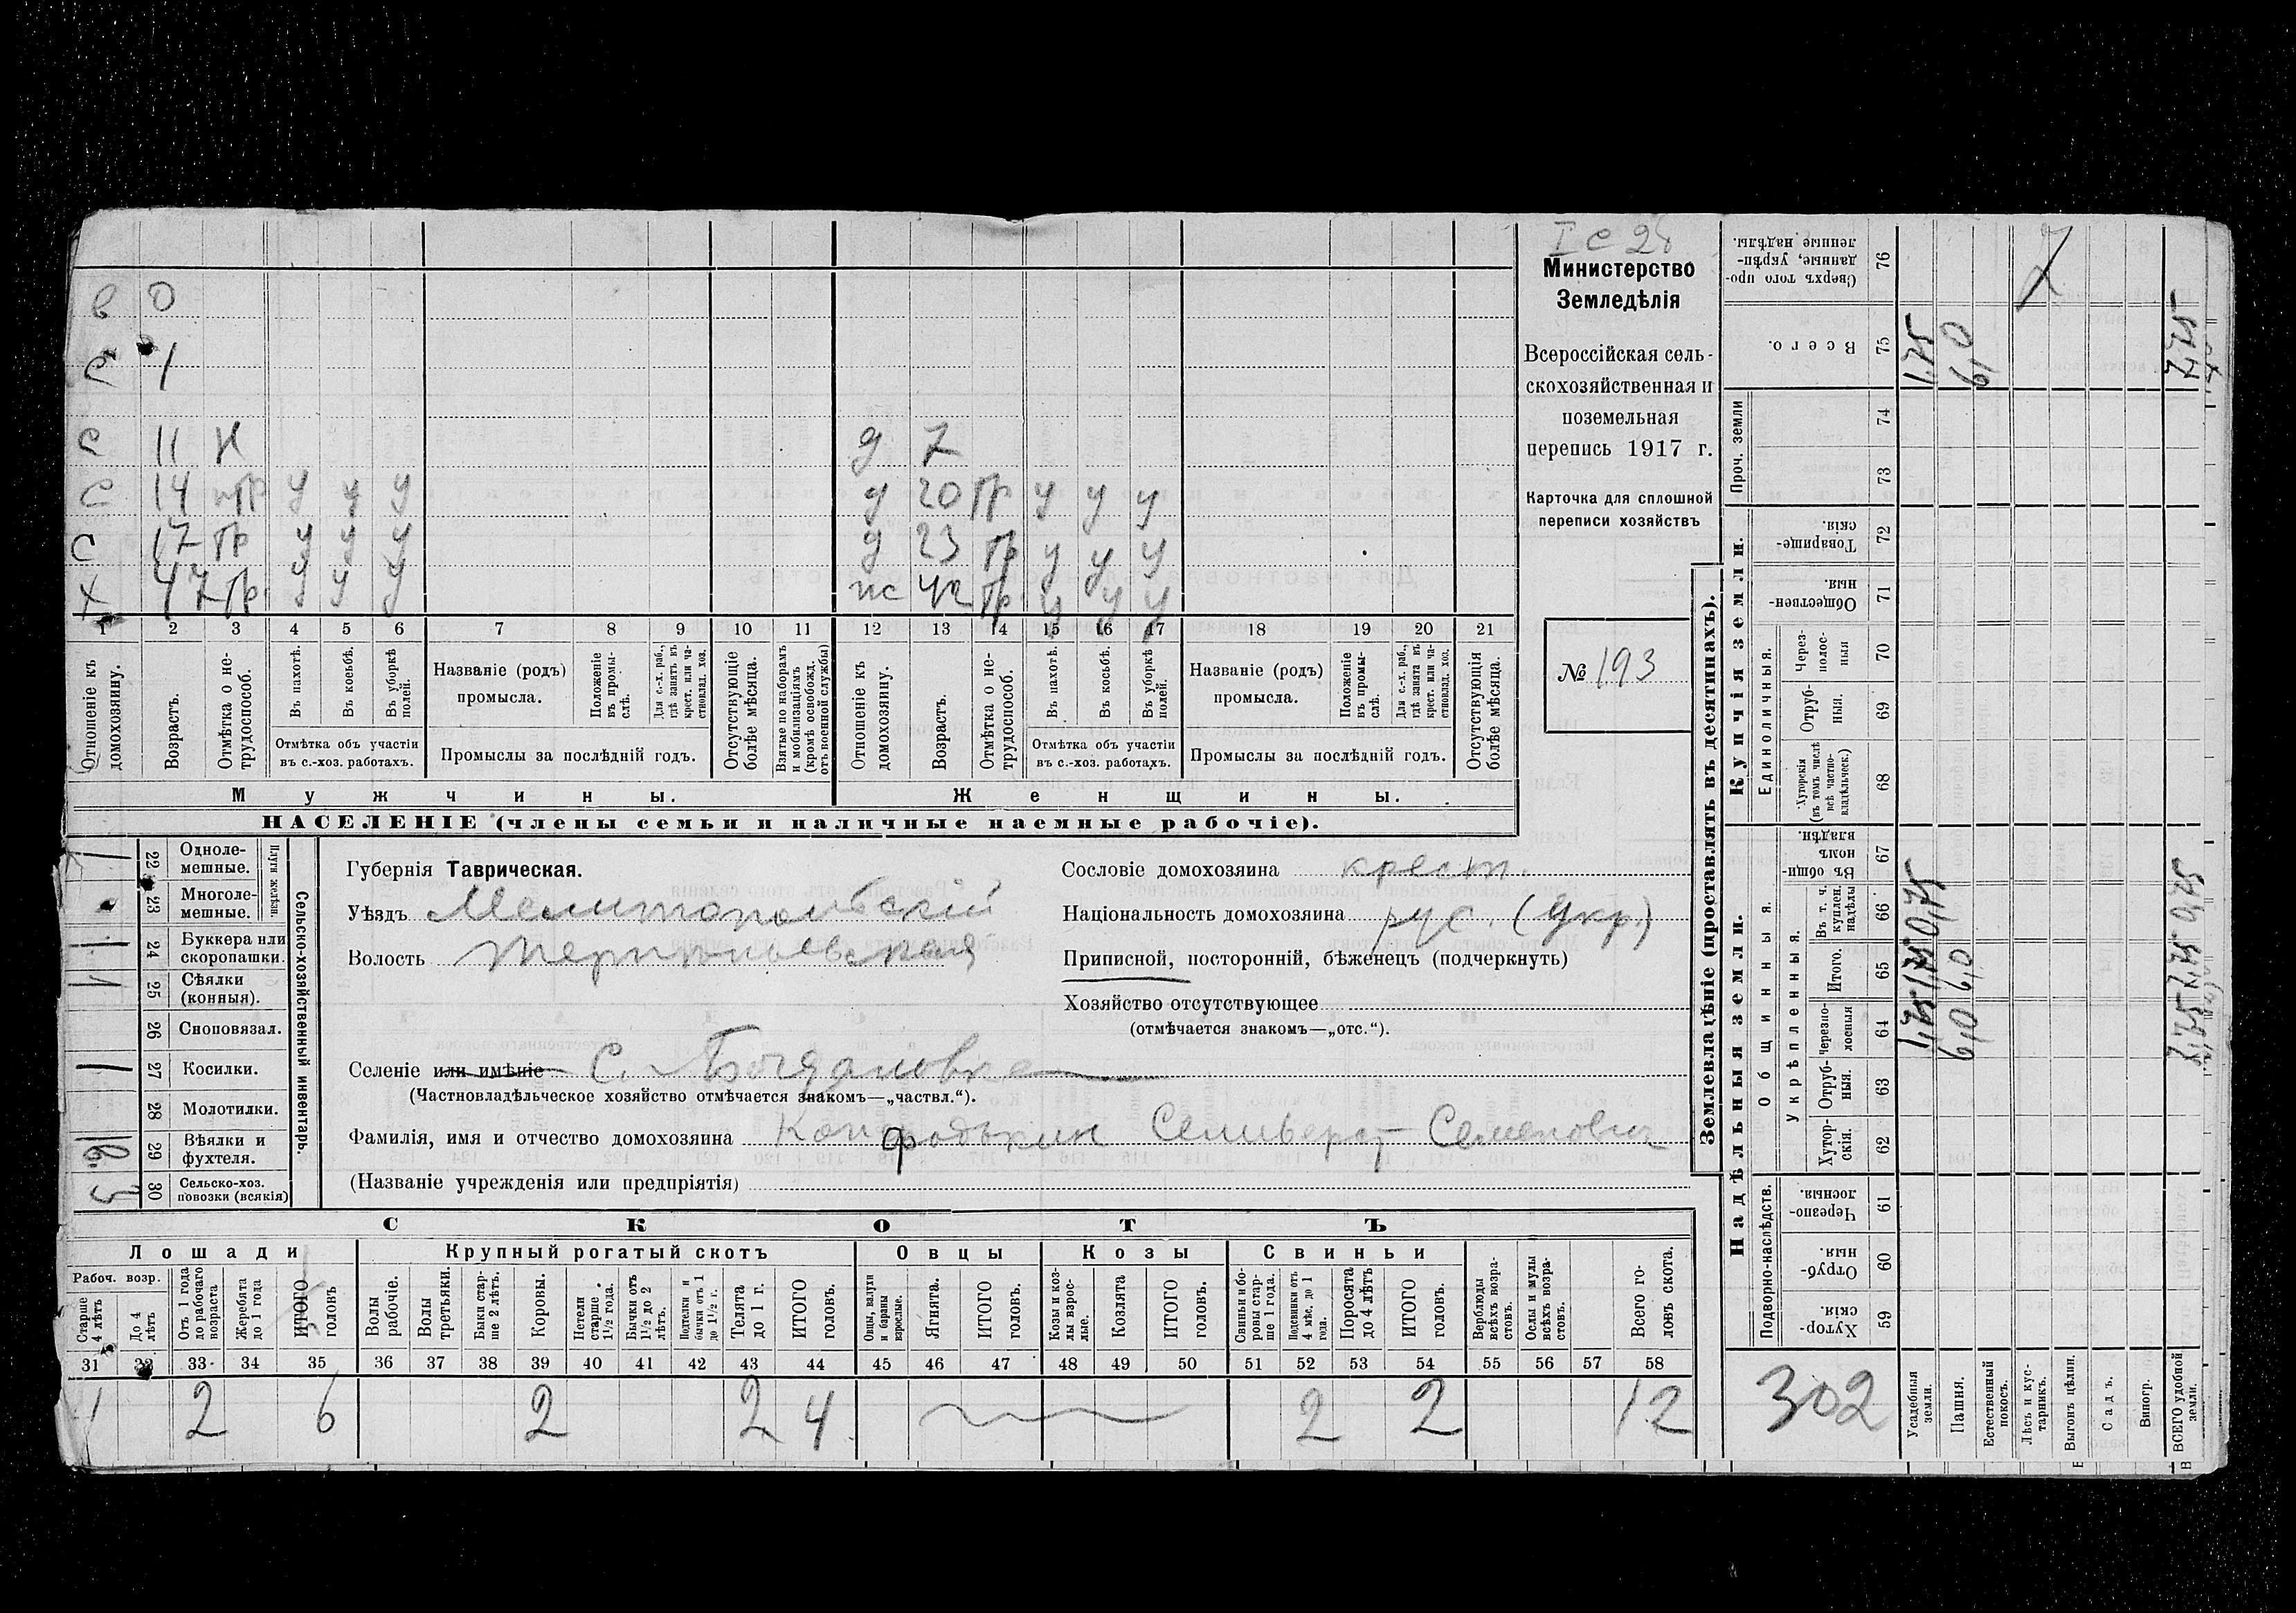 I с 28
Министерство
Земледѣлія
Всероссійская сель-
скохозяйственная и
поземельная
перепись 1917 г.
Карточка для сплошной
переписи хозяйствъ
№ 193
в 0
с 1
с 11 н
д 7
с 14 пр у у у
д 20 пр у у у
с 17 пр у у у
д 23 пр у у у
х 47 пр. у у у
жс 42 пр. у у у
1 2 3 4 5 6 7 8 9 10 11 12 13 14 15 16 17 18 19 20 21
Отношеніе къ домохозяину.
Возрастъ.
Отмѣтка о не-трудоспособ.
Въ пахотѣ.
Въ косьбѣ.
Въ уборкѣ полей.
Отмѣтка объ участіи
въ с.-хоз. работахъ.
Названіе (родъ)
промысла.
Положеніе въ промы-слѣ.
Для с.-х. раб., гдѣ занятъ въ крест. или ча-стновлад. хоз.
Промыслы за послѣдній годъ.
Отсутствующіе болѣе мѣсяца.
Взятые по наборамъ и мобилизаціямъ (кромѣ освобожд. отъ военной службы)
Отношеніе къ домохозяину.
Возрастъ.
Отмѣтка о не-трудоспособ.
Въ пахотѣ.
Въ косьбѣ.
Въ уборкѣ полей.
Отмѣтка объ участіи
въ с.-хоз. работахъ.
Названіе (родъ)
промысла.
Положеніе въ промы-слѣ.
Для с.-х. раб., гдѣ занята въ крест. или ча-стновлад. хоз.
Промыслы за послѣдній годъ.
Отсутствующія болѣе мѣсяца.
Мужчины.
Женщины.
НАСЕЛЕНІЕ (члены семьи и наличные наемные рабочіе).
1 22 Одноле-мешные.
23 Многоле-мешные.
Плуги желѣзн.
1 24 Буккера или скоропашки.
1 25 Сѣялки (конныя).
26 Сноповязал.
1 27 Косилки.
28 Молотилки.
29 Вѣялки и фухтеля.
30 Сельско-хоз. повозки (всякія)
Сельско-хозяйственный инвентарь.
Губернія Таврическая.
Уѣздъ Мелитопольскій
Волость Терпѣньевская
Сословіе домохозяина крест.
Національность домохозяина рус. (Укр.)
Приписной, посторонній, бѣженецъ (подчеркнуть)
Хозяйство отсутствующее
(отмѣчается знакомъ—„отс.“).
Селеніе или имѣніе С. Богдановка
(Частновладѣльческое хозяйство отмѣчается знакомъ—„частвл.“).
Фамилія, имя и отчество домохозяина Семенович
(Названіе учрежденія или предпріятія)
СКОТЪ
Лошади
Крупный рогатый скотъ
Овцы
Козы
Свиньи
Рабоч. возр.
Старше 4 лѣтъ
До 4 лѣтъ
Отъ 1 года до рабочаго возраста
Жеребята до 1 года
ИТОГО головъ
Волы рабочіе.
Волы третьяки.
Быки стар-ше 2 лѣтъ.
Коровы.
Нетели старше 1½ года.
Бычки отъ 1½ до 2 лѣтъ.
Подтелки и бычки отъ 1 до 1½ г.
Телята до 1 г.
ИТОГО головъ.
Овцы, валухи и бараны взрослые.
Ягнята.
ИТОГО головъ.
Козы и коз-лы взрос-лые.
Козлята
ИТОГО головъ.
Свиньи и бо-ровы стар-ше 1 года.
Подсвинки отъ 4 мѣс. до 1 года.
Поросята до 4 лѣтъ
ИТОГО головъ.
Верблюды всѣхъ возра-стовъ.
Ослы и мулы всѣхъ возра-стовъ.
Всего го-ловъ скота.
31 32 33 34 35 36 37 38 39 40 41 42 43 44 45 46 47 48 49 50 51 52 53 54 55 56 57 58
2 6 2 2 4 2 2 12
Землевладѣніе (проставлять въ десятинахъ).
Надѣльныя земли.
Купчія земли.
Проч. земли
Подворно-наслѣдств.
Общинныя.
Укрѣпленныя.
Единоличныя.
59 Хутор-скія.
60 Отруб-ныя.
61 Черезпо-лосныя.
62 Хутор-скія.
63 Отруб-ныя.
64 Черезпо-лосныя
65 Итого.
66 Въ т. ч. куплен. надѣлы
67 Въ общин-номъ владѣн.
68 Хуторскія (въ томъ числѣ всѣ частно-владѣльческ.)
69 Отруб-ныя.
70 Через-полос-ныя
71 Обществен-ныя.
72 Товарище-скія.
73
74
75 Всего.
76 Сверхъ того про-данные, укрѣп-ленные надѣлы.
302
Усадебныя земли. 1,75 1,75 0,75 1,75
Пашня. 6,0 6,0 6,0
Естественный покосъ.
Лѣсъ и кус-тарникъ.
Выгонъ цѣлин.
Садъ.
Виногр.
ВСЕГО удобной земли. 7,75 7,75 0,75 7,75